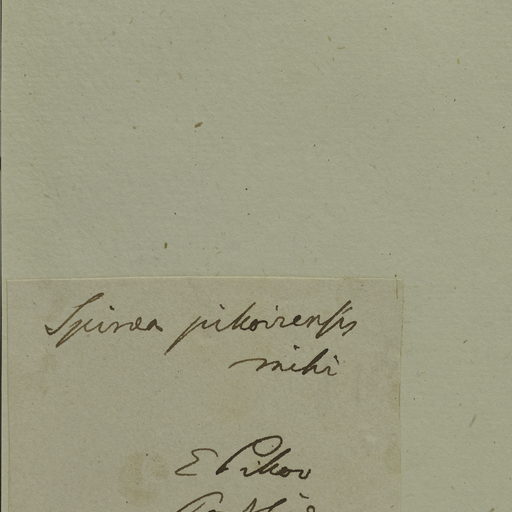 Spiraea pikoviensis
mihi
E Pikov